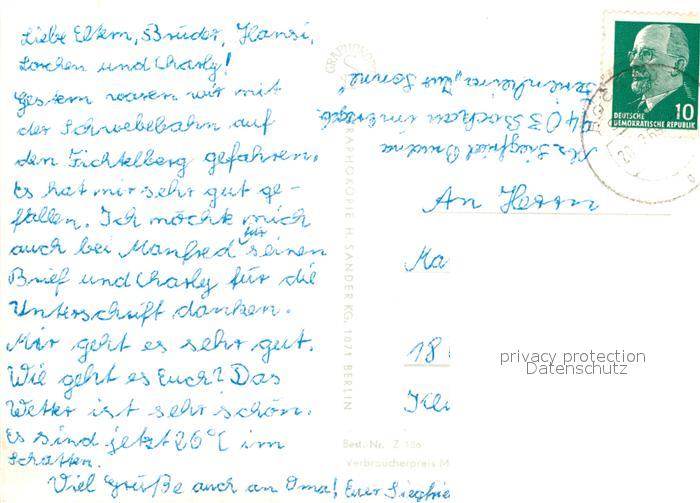 Liebe Eltern, Bruder, Hansi,
Lorchen und Charly!
Gestern waren wir mit
der Schwebebahn auf
den Fichtelberg gefahren.
Es hat mir sehr gut ge-
fallen. Ich möchte mich
auch bei Manfred für seinen
Brief und Charly für die
Unterschrift danken.
Mir geht es sehr gut.
Wie geht es Euch? Das
Wetter ist sehr schön.
Es sind jetzt 26°C im
Schatten.
Viel Grüße auch an Oma! Euer Siegfrie
GRAPHOKOPIE H. SANDER KG, 1071 BERLIN
Best.-Nr. Z 136
Verbraucherpreis M
Abs. Siegfried
Ferienheim "Zur Sonne"
DEUTSCHE
DEMOKRATISCHE REPUBLIK
10
An Herrn
Ma
18
Kle
privacy protection
Datenschutz